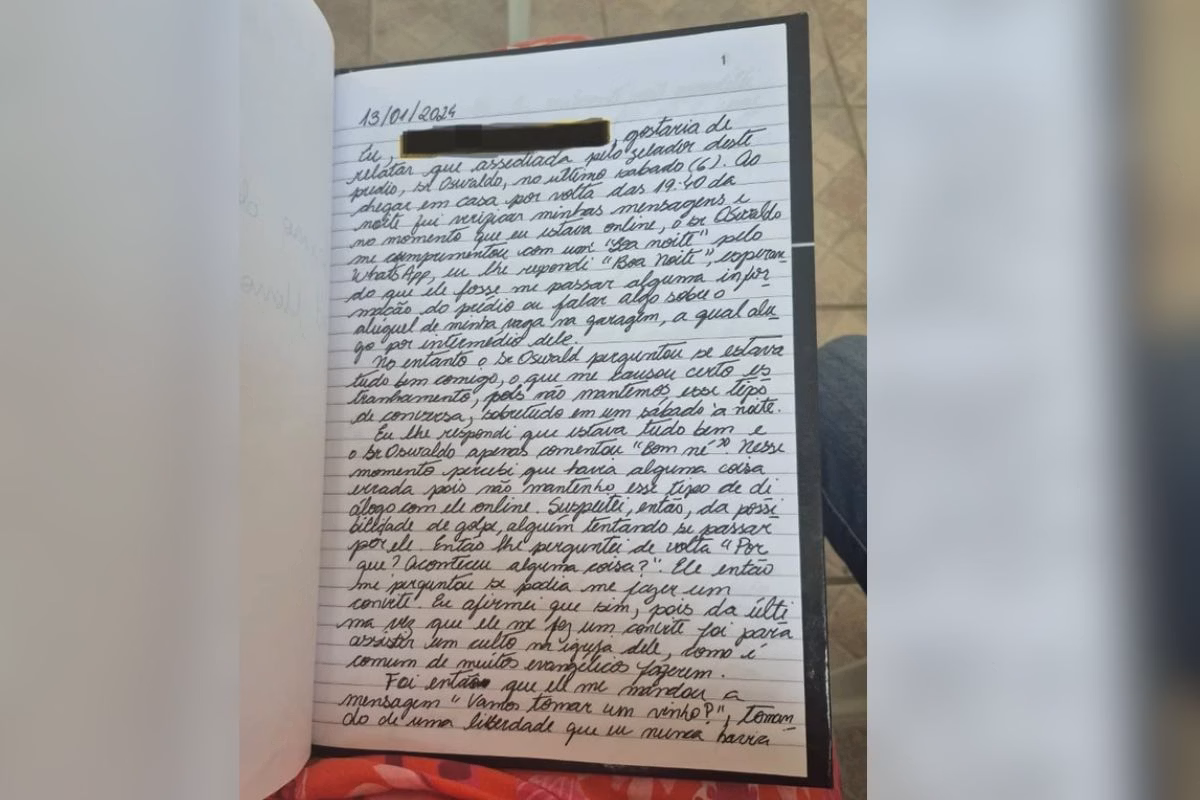 1
13/01/2024
Eu, , gostaria de
relatar que assediada pelo zelador deste
prédio, Sr Oswaldo, no último sábado (6). Ao
chegar em casa por volta das 19:40 da
noite fui verificar minhas mensagens e
no momento que eu estava online, o Sr Oswaldo
me cumprimentou com um "Boa noite" pelo
WhatsApp, eu lhe respondi "Boa Noite", esperan
do que ele fosse me passar alguma infor
mação do prédio ou falar algo sobre o
aluguel de minha vaga na garagem, a qual alu
go por intermédio dele.
No entanto o Sr Oswald perguntou se estava
tudo bem comigo, o que me causou certo es
tranhamento, pois não mantemos esse tipo
de conversa, sobretudo em um sábado à noite.
Eu lhe respondi que estava tudo bem e
o Sr Oswaldo apenas comentou "Bom né". Nesse
momento percebi que havia alguma coisa
errada pois não mantenho esse tipo de di
álogo com ele online. Suspeitei, então, da possi
bilidade de golpe, alguém tentando se passar
por ele. Então lhe perguntei de volta "Por
que? Aconteceu alguma coisa?". Ele então
me perguntou se podia me fazer um
convite. Eu afirmei que sim, pois da últi
ma vez que ele me fez um convite foi para
assistir um culto na igreja dele, como é
comum de muitos evangélicos fazerem.
Foi então que ele me mandou a
mensagem "Vamos tomar um vinho?", toman
do de uma liberdade que eu nunca havia